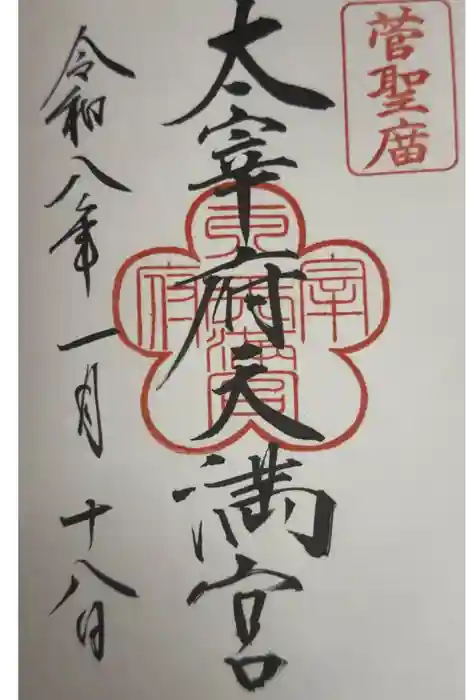 菅聖廟
太宰府天満宮
令和八年一月十八日